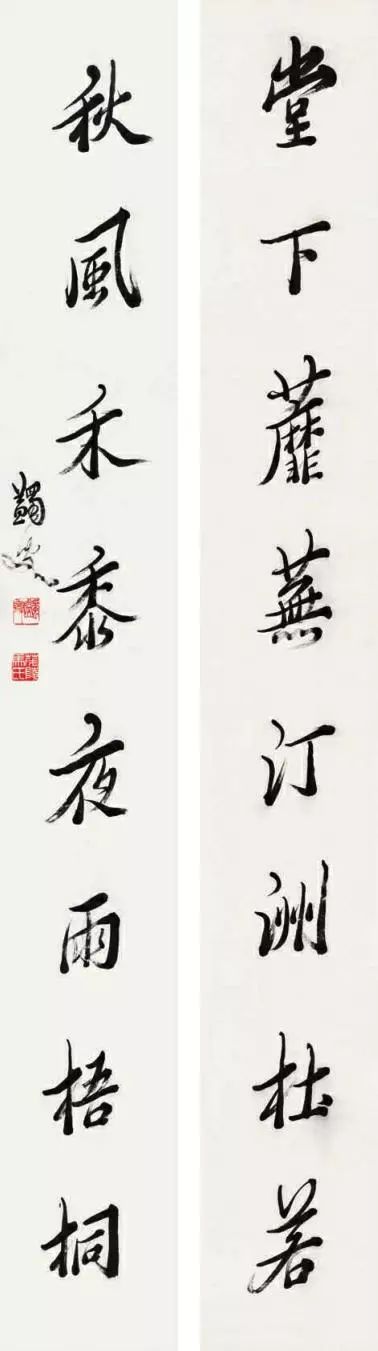 堂下蘼蕪汀洲杜若
秋風禾黍夜雨梧桐
蠲叟